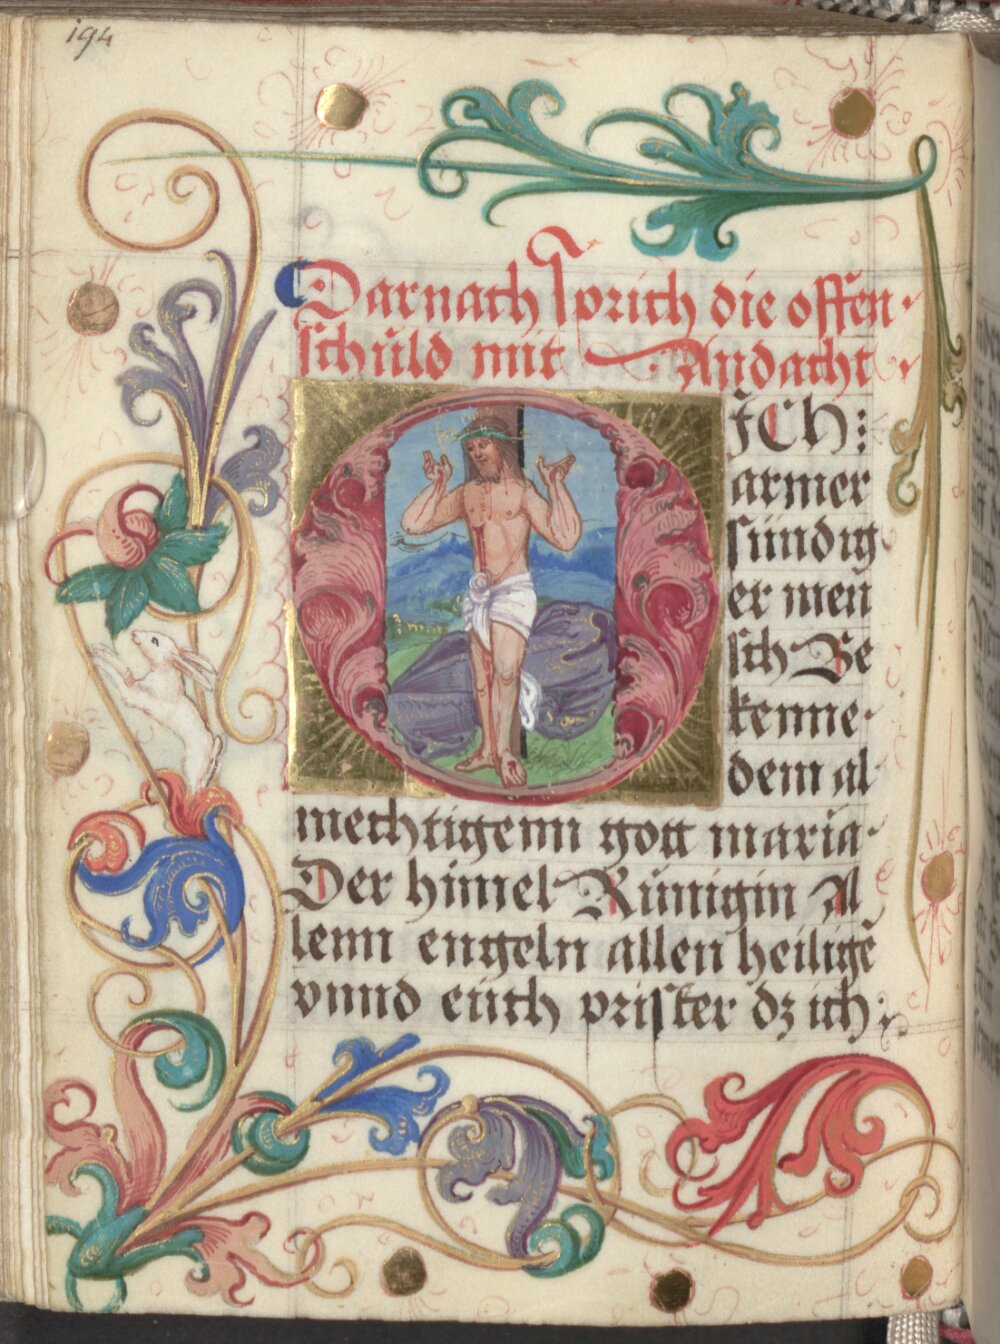 194
Darnach sprich die offen
schůld mit Andacht
JCh
armer
sündig
er men
sch Be
kenne
dem al
mechtigenn gott maria
Der himel Künigin Al
lenn engeln allen heiligē
vnnd eüch prister dz ich